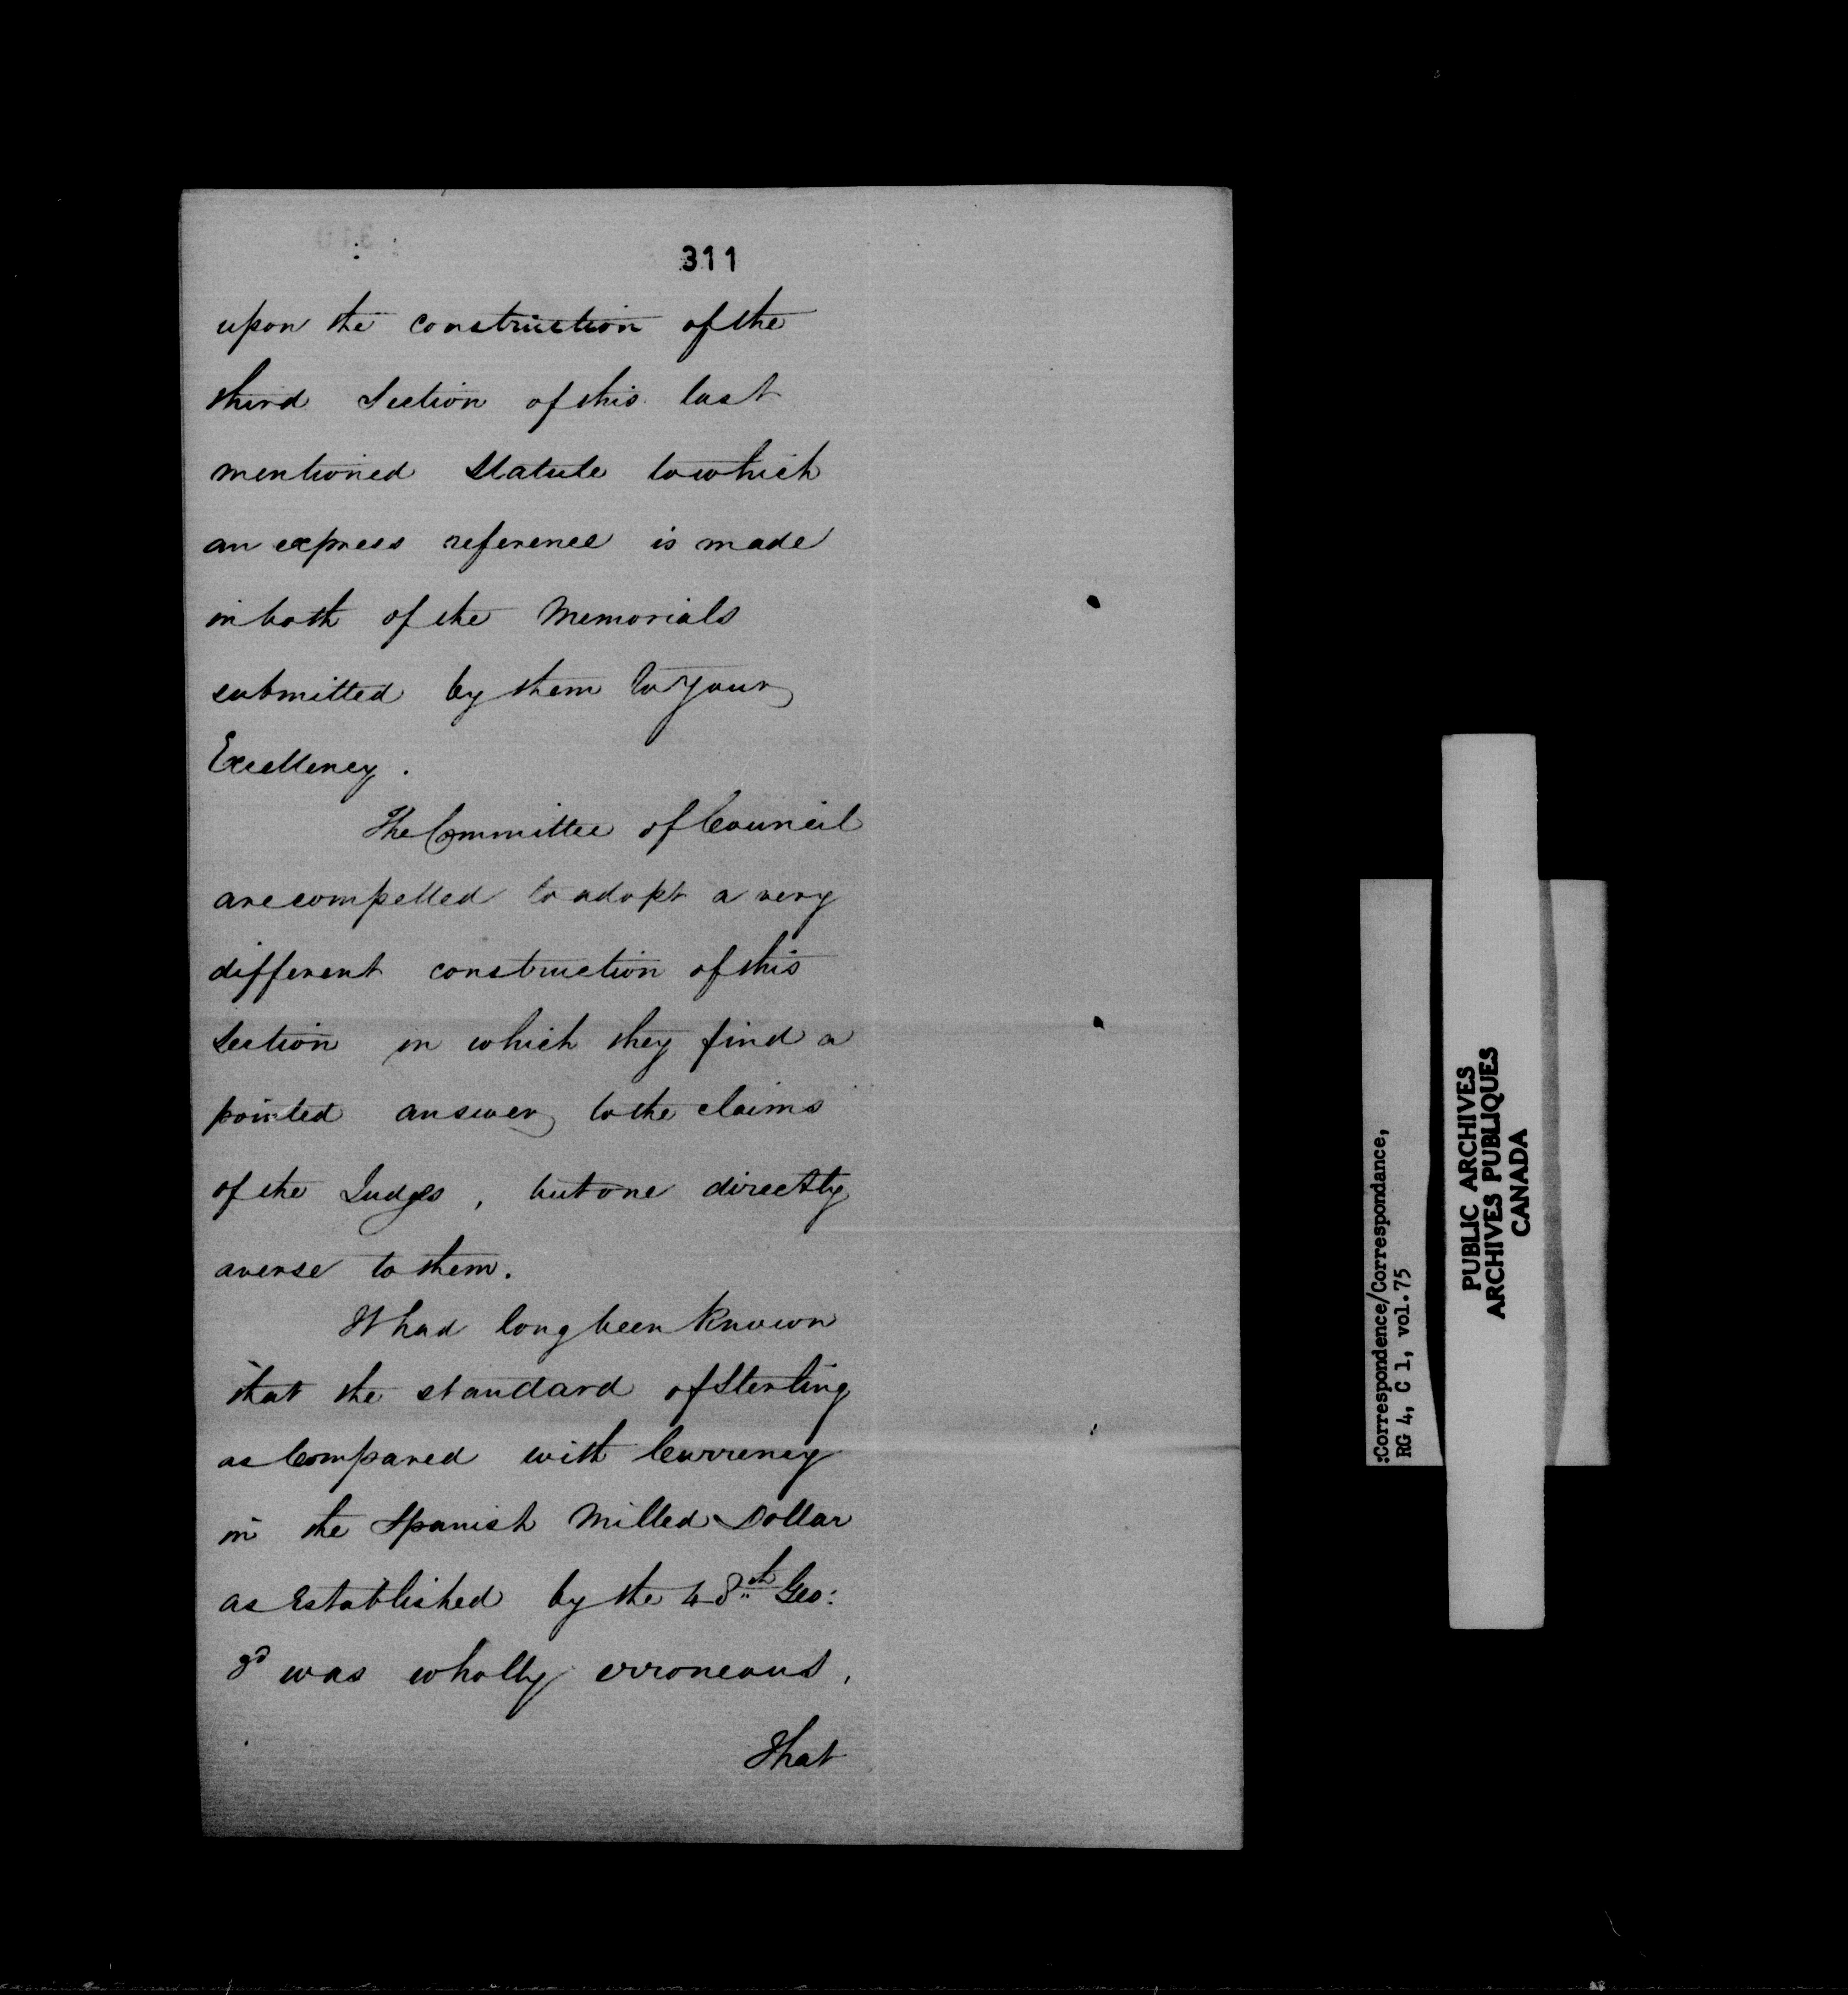 311
upon the construction of the
third Section of this last
mentioned Statute to which
an express reference is made
in both of the Memorials
submitted by them to Your
Excellency.
The Committee of Council
are compelled to adopt a very
different construction of this
Section in which they find a
pointed answer to the claims
of the Judges, but one directly
averse to them.
It had long been known
that the standard of Sterling
as Compared with Currency
in the Spanish Milled Dollar
as Established by the 48th Geo:
3d was wholly erroneous,
That
:Correspondence/Correspondance,
RG 4, C 1, vol.75
PUBLIC ARCHIVES
ARCHIVES PUBLIQUES
CANADA